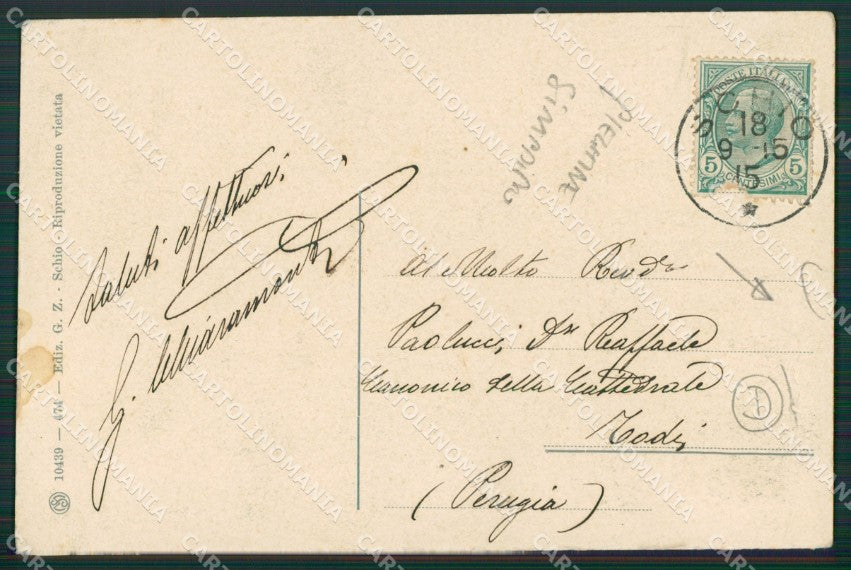 10439 — 474 — Ediz. G. Z. - Schio - Riproduzione vietata
Saluti affettuosi
G. Chiaramonti
POSTE ITALIANE
5 CENTESIMI 5
SCHIO
18
9 - 15
15
Al Molto Revdo
Paolucci Dn Raffaele
Canonico della Cattedrale
Todi
(Perugia)
CARTOLINOMANIA